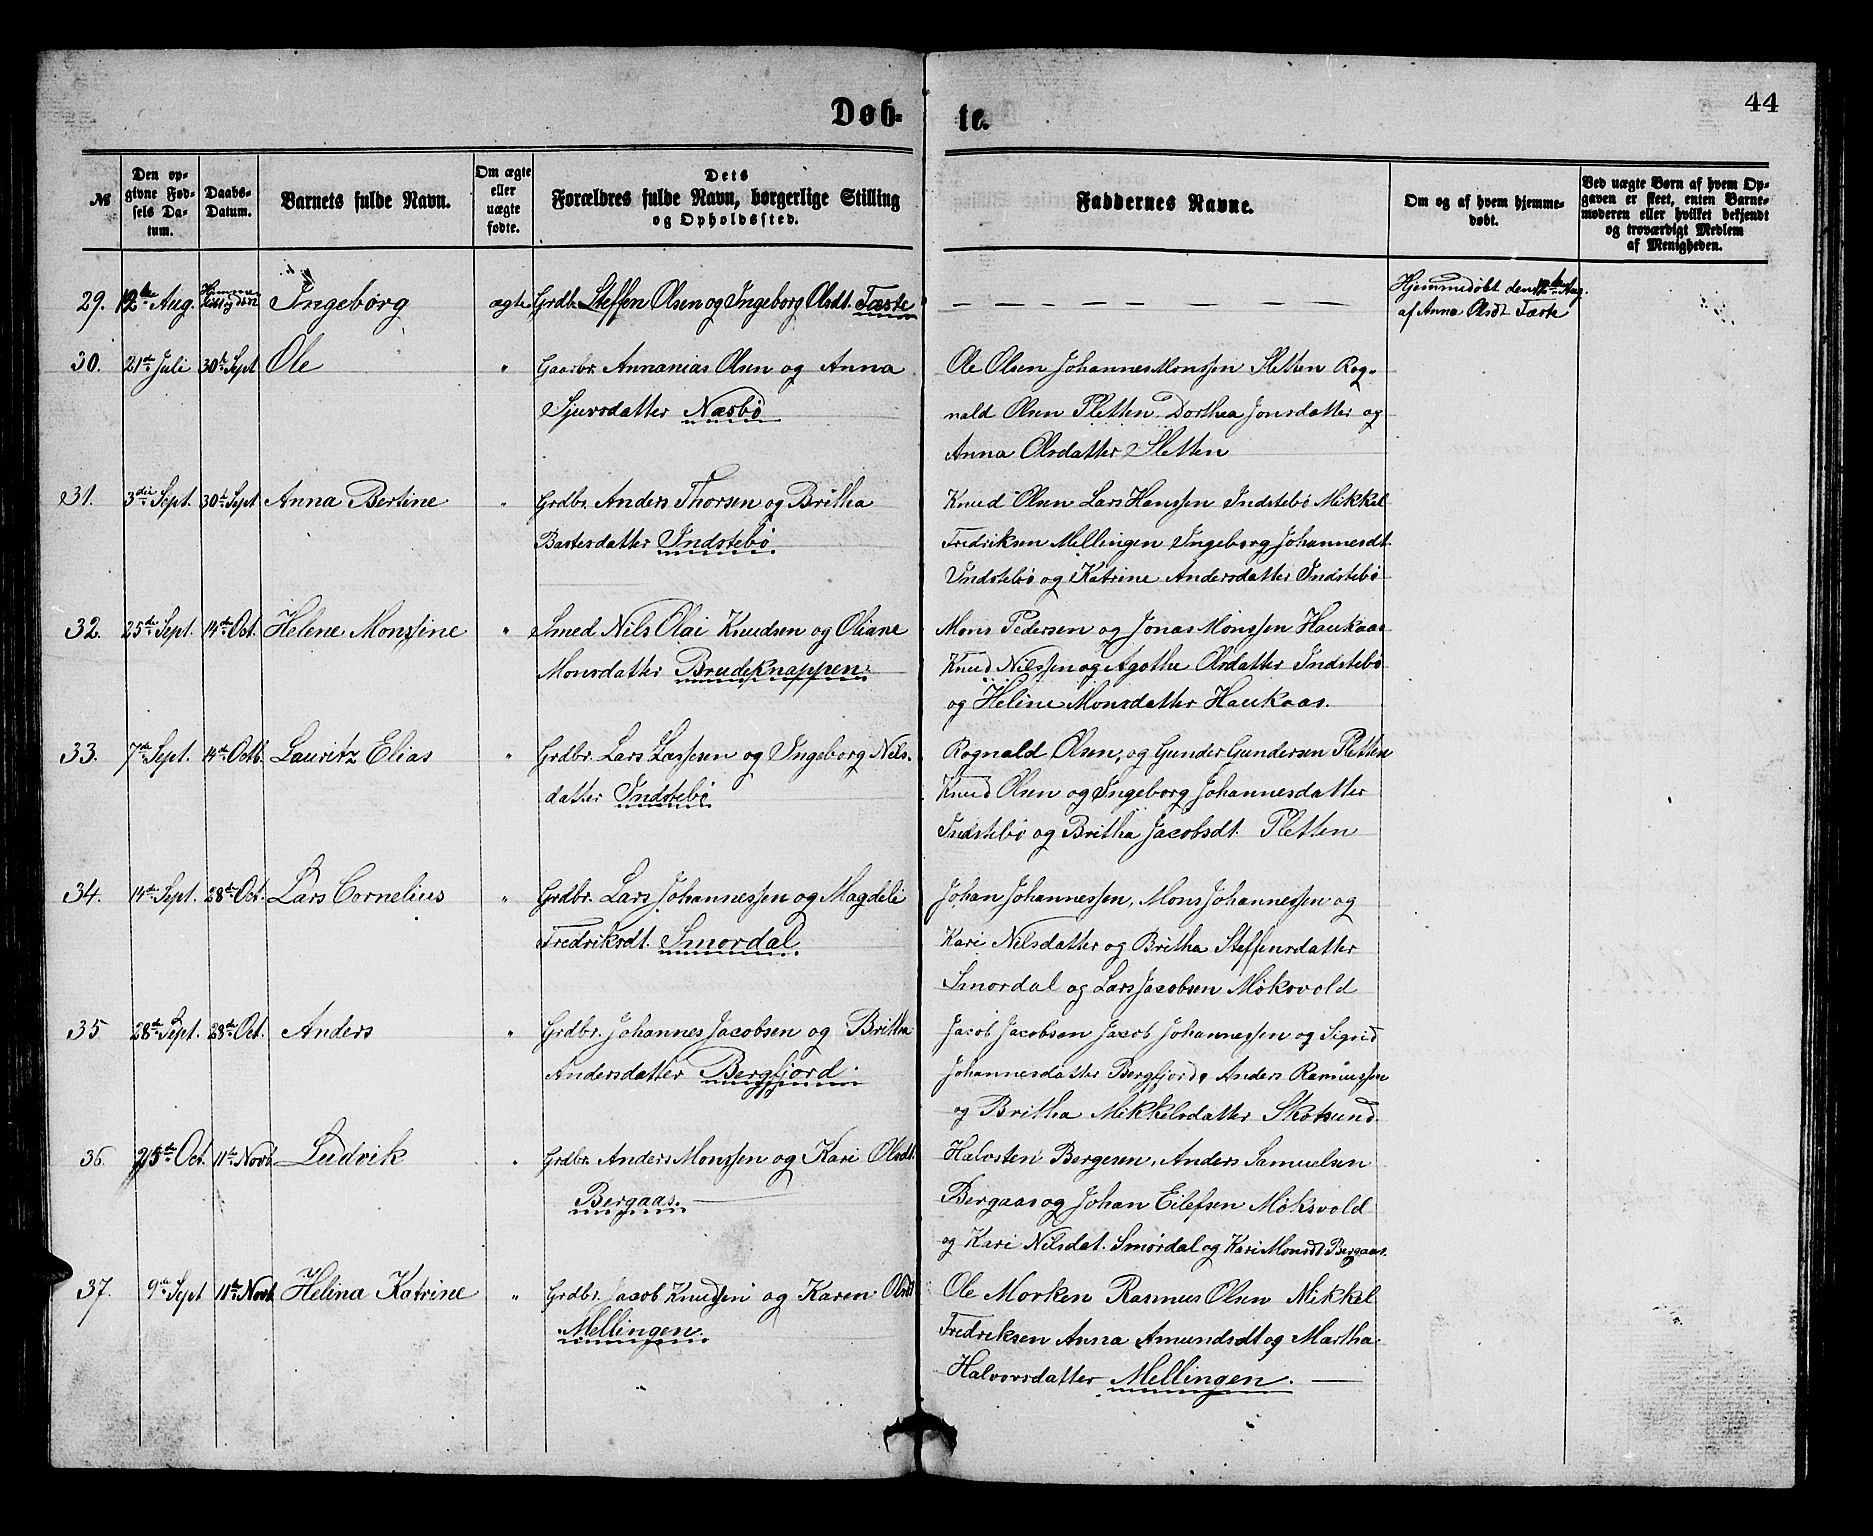 44
Døb-
te.
№
Den op-
givne Fød-
sels Da-
tum.
Daabs-
Datum.
Barnets fulde Navn.
Om ægte
eller
uægte
fødte.
Dets
Forældres fulde Navn, borgerlige Stilling
og Opholdssted.
Faddernes Navne.
Om og af hvem hjemme-
døbt.
Ved uægte Børn af hvem Op-
gaven er skeet, enten Barne-
moderen eller hvilket bekjendt
og troværdigt Medlem
af Menigheden.
29. 12te Aug. Ingeborg ægte Grdbr. Steffen Olsen og Ingeborg Olsdt. Tæste
Hjemmedøbt den Aug.
af Anna Olsdt Tæste
30. 21de Juli 30te Sept Ole " Gaarbr. Annanias Olsen og Anna
Sjursdatter Næsbø
Ole Olsen Johannes Monssen Sletten Rog-
nald Olsen Pletten Dorthea Jonsdatter og
Anna Olsdatter Sletten
31. 3die Sept. 30te Sept Anna Bertine " Grdbr. Anders Thorsen og Britha
Bastesdatter Indstebø
Knud Olsen Lars Hanssen Indstebø Mikkel
Fredriksen Mellingen Ingeborg Johannesdt.
Indstebø og Katrine Andersdatter Indstebø
32. 25de Sept. 14de Oct. Helene Monssine " Smed Nils Olai Knudsen og Oliane
Monsdatter Brudeknappen
Mons Pedersen og Jonas Monssen Haukaas
Knud Nilssen og Agothe Olsdatter Indstebø
og Heline Monsdatter Haukaas.
33. 7de Sept. 14de Octb. Lauritz Elias " Grdbr. Lars Lassesen og Ingeborg Nils-
datter Indstebø
Rognald Olsen, og Gunder Gundersen Pletten
Knud Olsen og Ingeborg Johannesdatter
Indstebø og Britha Jacobsdt. Pletten
34. 14de Sept. 28de Oct. Lars Cornelius " Grdbr. Lars Johannessen og Magdeli
Fredriksdt. Smordal
Johan Johannessen, Mons Johannessen og
Kari Nilsdatter og Britha Steffensdatter
Smordal og Lars Jacobsen Møksvold
35. 28de Sept. 28de Oct. Anders " Grdbr. Johannes Jacobsen og Britha
Andersdatter Bergfjord.
Jacob Jacobsen Jacob Johannessen og Sigrid
Johannesdatter Bergfjord, Anders Rasmussen
og Britha Mikkelsdatter Skotsund.
36. 25de Oct. 11te Novb. Ludvik " Grdbr. Anders Monssen og Kari Olsdt.
Bergaas.
Halvsten Børgesen, Anders Samuelsen
Bergaas og Johan Eilefsen Møksvold
og Kari Nilsdat. Smørdal og Kari Monsdt Bergaas.
37. 9de Sept 11te Novb. Helina Katrine " Grdbr. Jacob Knudsen og Karen Olsdt
Mellingen.
Ole Morken Rasmus Olsen Mikkel
Fredriksen Anna Amundsdt og Martha
Halvorsdatter Mellingen.